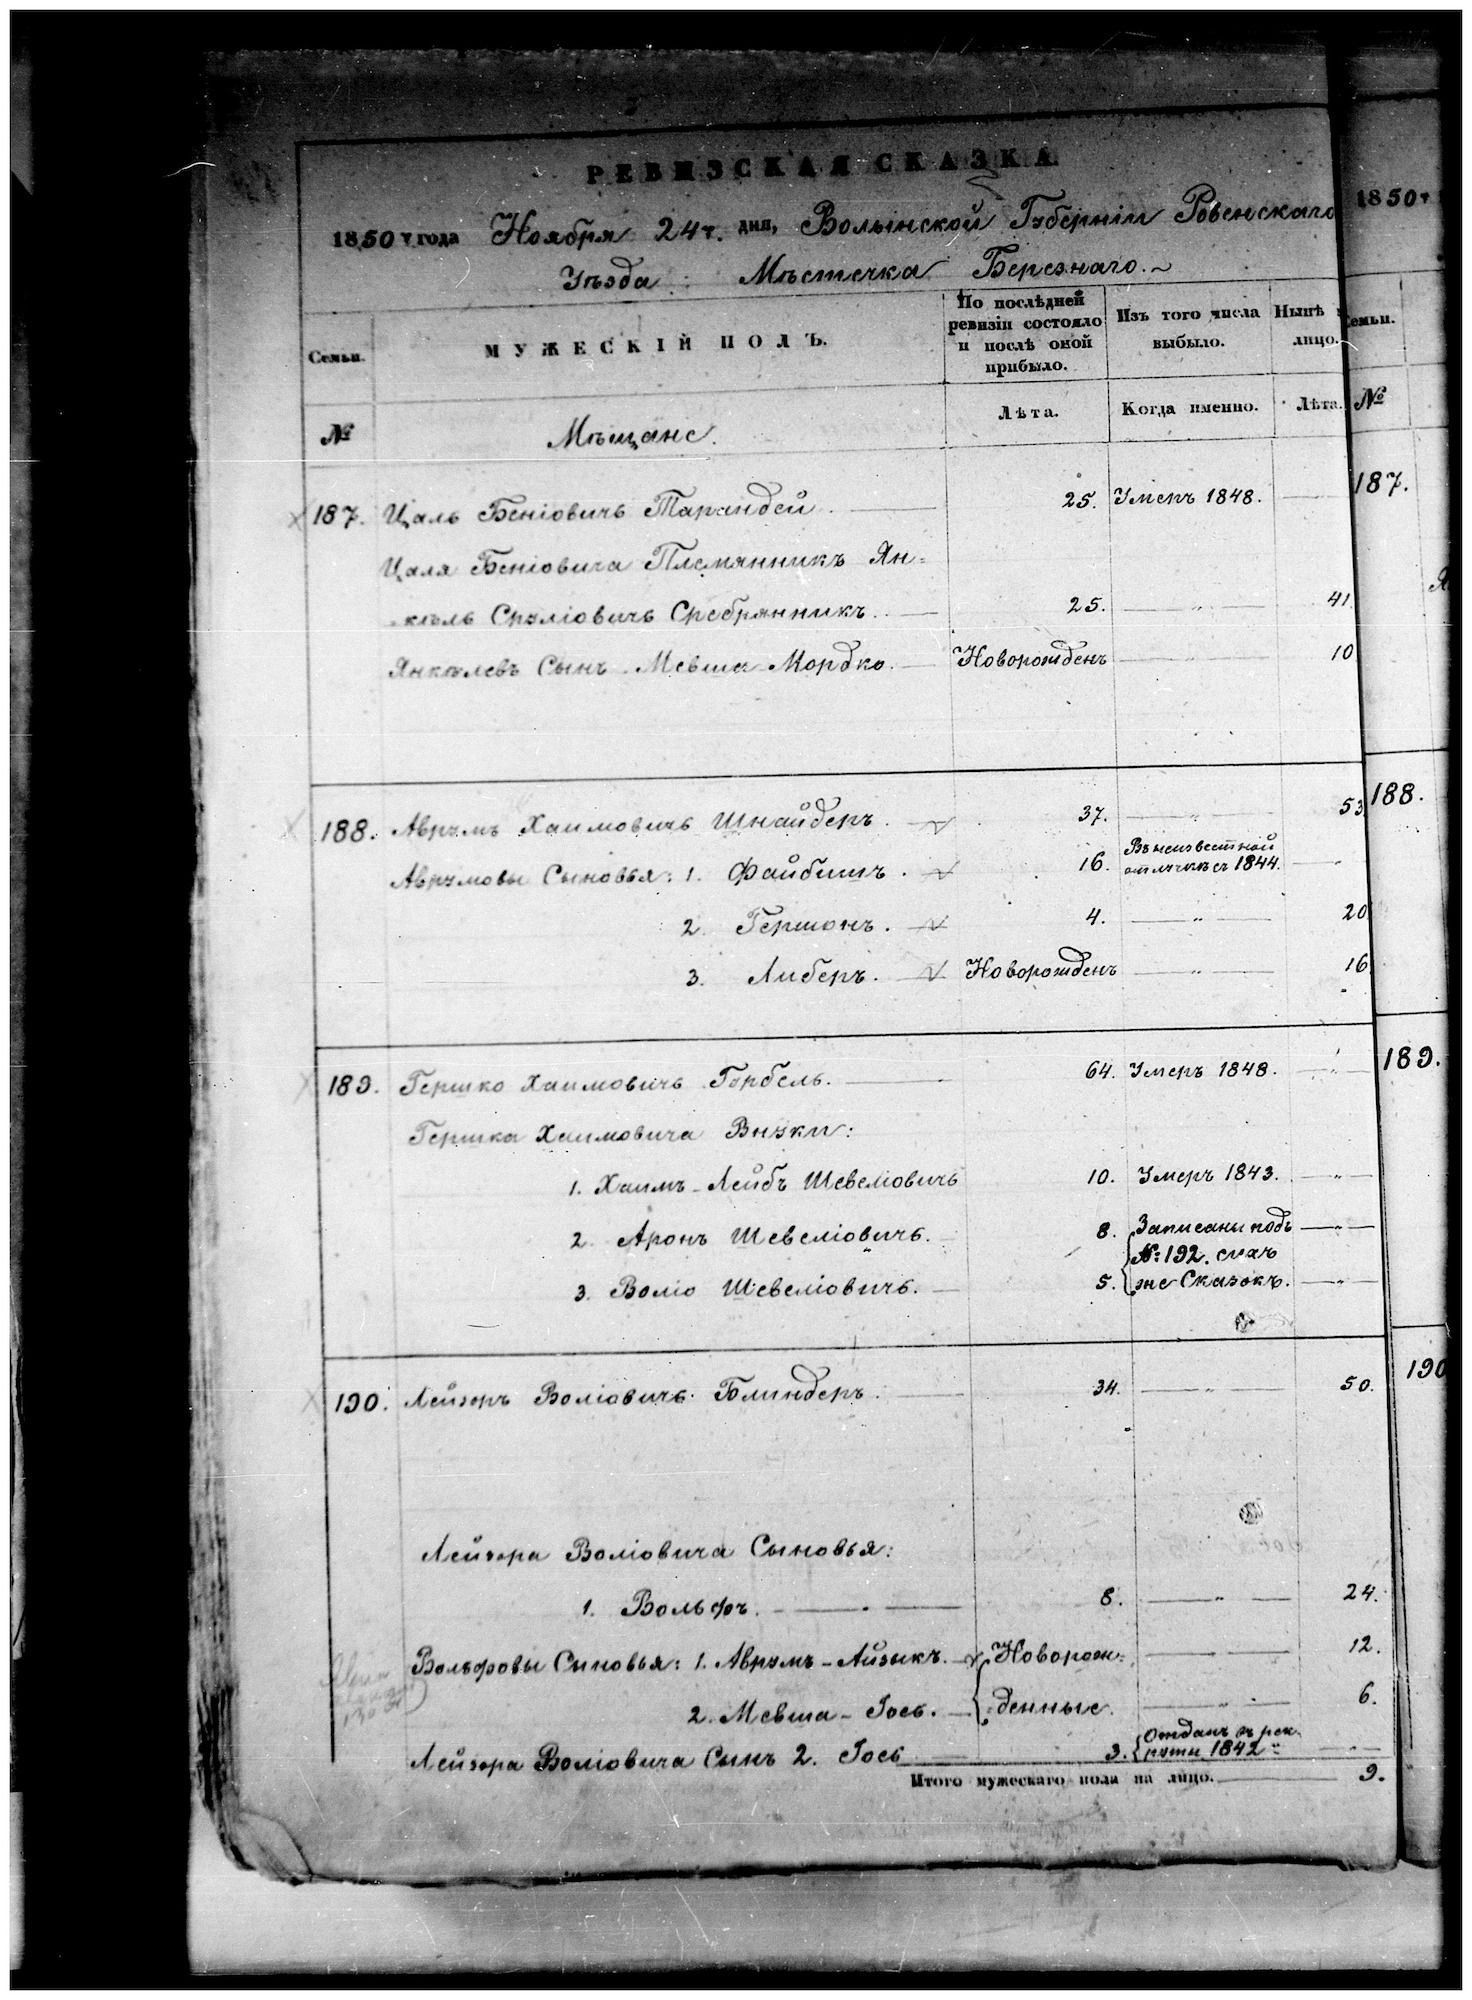 РЕВИЗСКАЯ СКАЗКА
1850 г. года Ноября 24 г. дня, Волынской Губерніи Ровенскаго
Уѣзда Мѣстечка Березнаго.
Семьи.
МУЖЕСКІЙ ПОЛЪ.
По послѣдней ревизіи состояло и послѣ оной прибыло.
Изъ того числа выбыло.
Нынѣ
лицо.
№
Мѣщане.
Лѣта.
Когда именно.
Лѣта.
187. Цаль Беніовичъ Тарандей. 25. Умеръ 1848.
Цаля Беніовича Племянникъ Ян=
кель Сруліовичъ Сребрянникъ. 25. — " — 41
Янкелевъ Сынъ Мевша Мордко. Новорожденъ — " — 10
188. Аврумъ Хаимовичъ Шнайдеръ. 37. — " — 53
Аврумовы Сыновья: 1. Файбишъ. 16. Въ неизвестной отлучкѣ съ 1844. — " —
2. Гершонъ. 4. — " — 20
3. Либеръ. Новорожденъ — " — 16
189. Гершко Хаимовичъ Горбель. 64. Умеръ 1848. — " —
Гершка Хаимовича Внуки:
1. Хаимъ-Лейбъ Шевеліовичъ 10. Умеръ 1843. — " —
2. Аронъ Шевеліовичъ. 8. Записаны подъ — " —
№: 192. сихъ
3. Воліо Шевеліовичъ. 5. же Сказокъ. — " —
190. Лейзоръ Воліовичъ Блиндеръ. 34. — " — 50.
Лейзора Воліовича Сыновья:
1. Вольфъ. 8. — " — 24.
Вольфовы Сыновья: 1. Аврумъ-Айзыкъ. Новорож= — " — 12.
2. Мевша-Госъ. денные. — " — 6.
Лейзора Воліовича Сынъ 2. Госъ 3. Отданъ въ рек
руты 1842 — " —
Итого мужескаго пола на лицо. 9.
1850 г
Семьи.
№
187.
188.
189.
190